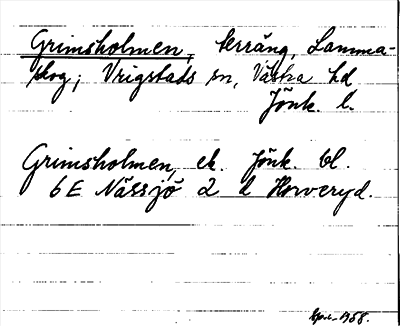 Grimsholmen, terräng, Lamma-
skog; Vrigstads sn, Västra hd
Jönk. l.
Grimsholmen, ek. Jönk. bl.
6E Nässjö 2 d Horveryd.
1958.